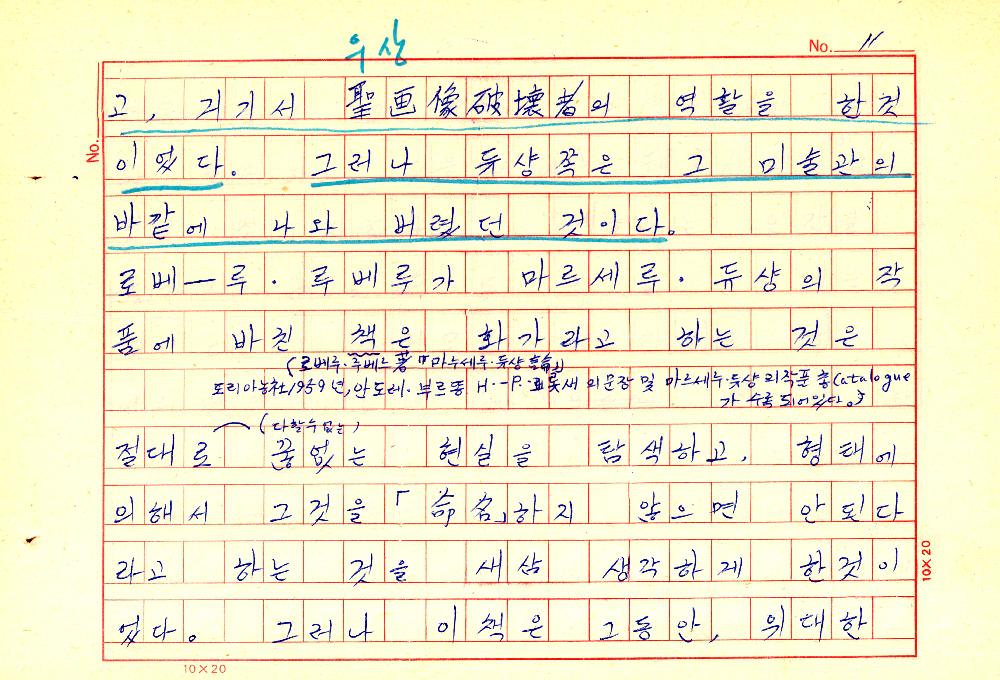 우상
No. 11
고, 거기서 聖画像破壞者의 역활을 한것
No.
이었다. 그러나 듀샹꼭은 그 미술관의
바깥에 나와 버렸던 것이다.
로베—루·루베루가 마르세루·듀샹의 작
품에 바친 책은 화가라고 하는 것은
(로베루·루베르 著『마루세루·듀샹論』)
도리아농社, 1959년, 안도레·부르똥 H·-P· 의 문장 및 마르세루·듀샹의 작품 총 Catalogue
가 수록 되어있다.)
(다할수없는)
절대로 끊없는 현실을 탐색하고, 형태에
의해서 그것을「命名」하지 않으면 안된다
라고 하는 것을 새삼 생각하게 한것이
었다. 그러나 이 책은 그동안, 위대한
10×20
10×20